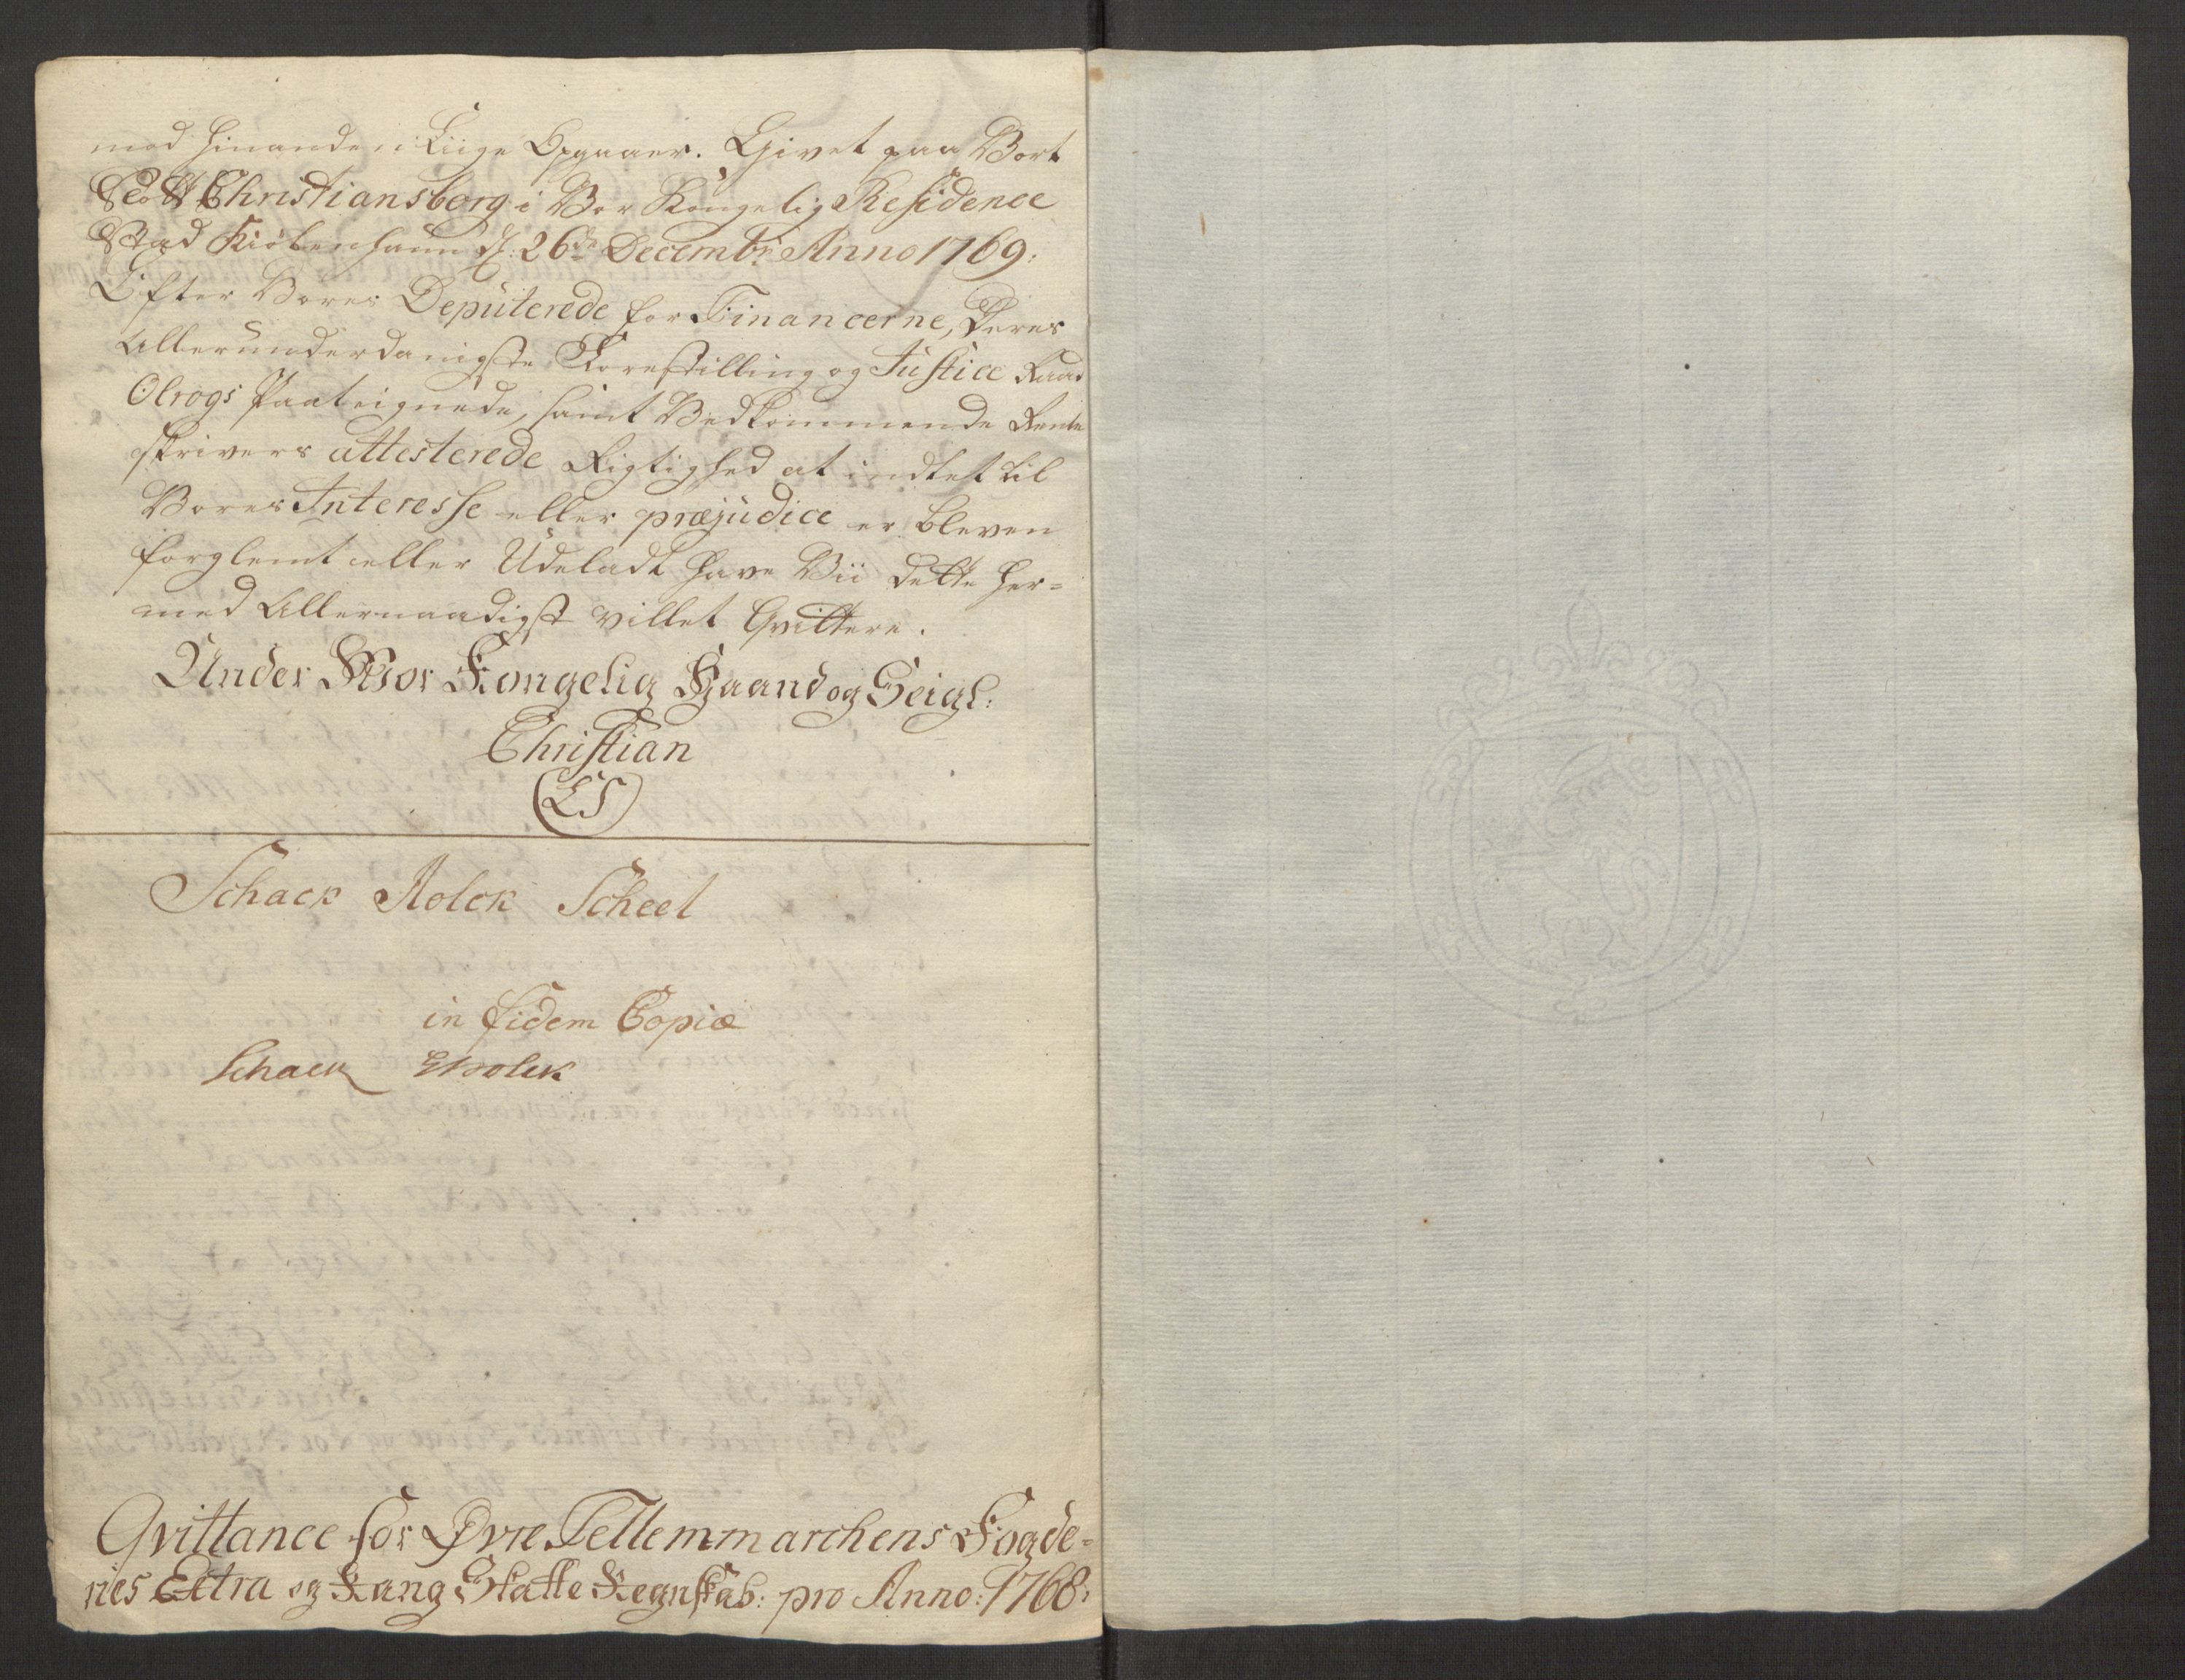 mod hinanden i Liige Opgaaer. Givet paa Vort
Slott Christiansborg i Vor Kongelig Residence
Stad Kiöbenhaun d: 26de Decembr: Anno 1769:
Efter Vores Deputerede for Financerne, Deres
Allerunderdanigste Forestilling og Justice Raad
Olrogs Paateignede, samt Vedkommende Rente
skrivers attesterede Rigtighed at indtet til
Vores Interesse eller præjudice er bleven
forglemt eller Udeladt have Vii dette her=
med Allernaadigst villet Qvittere.
Under Vor Kongelig Haand og Seigl:
Christian
(LS)
Schack Holck Scheel
in fidem Copiæ
Schack Holck
Qvittance for Øvre Tellemmarchens Fogde=
ries Extra og Rang Skatte Regnskab: pro Anno: 1768: